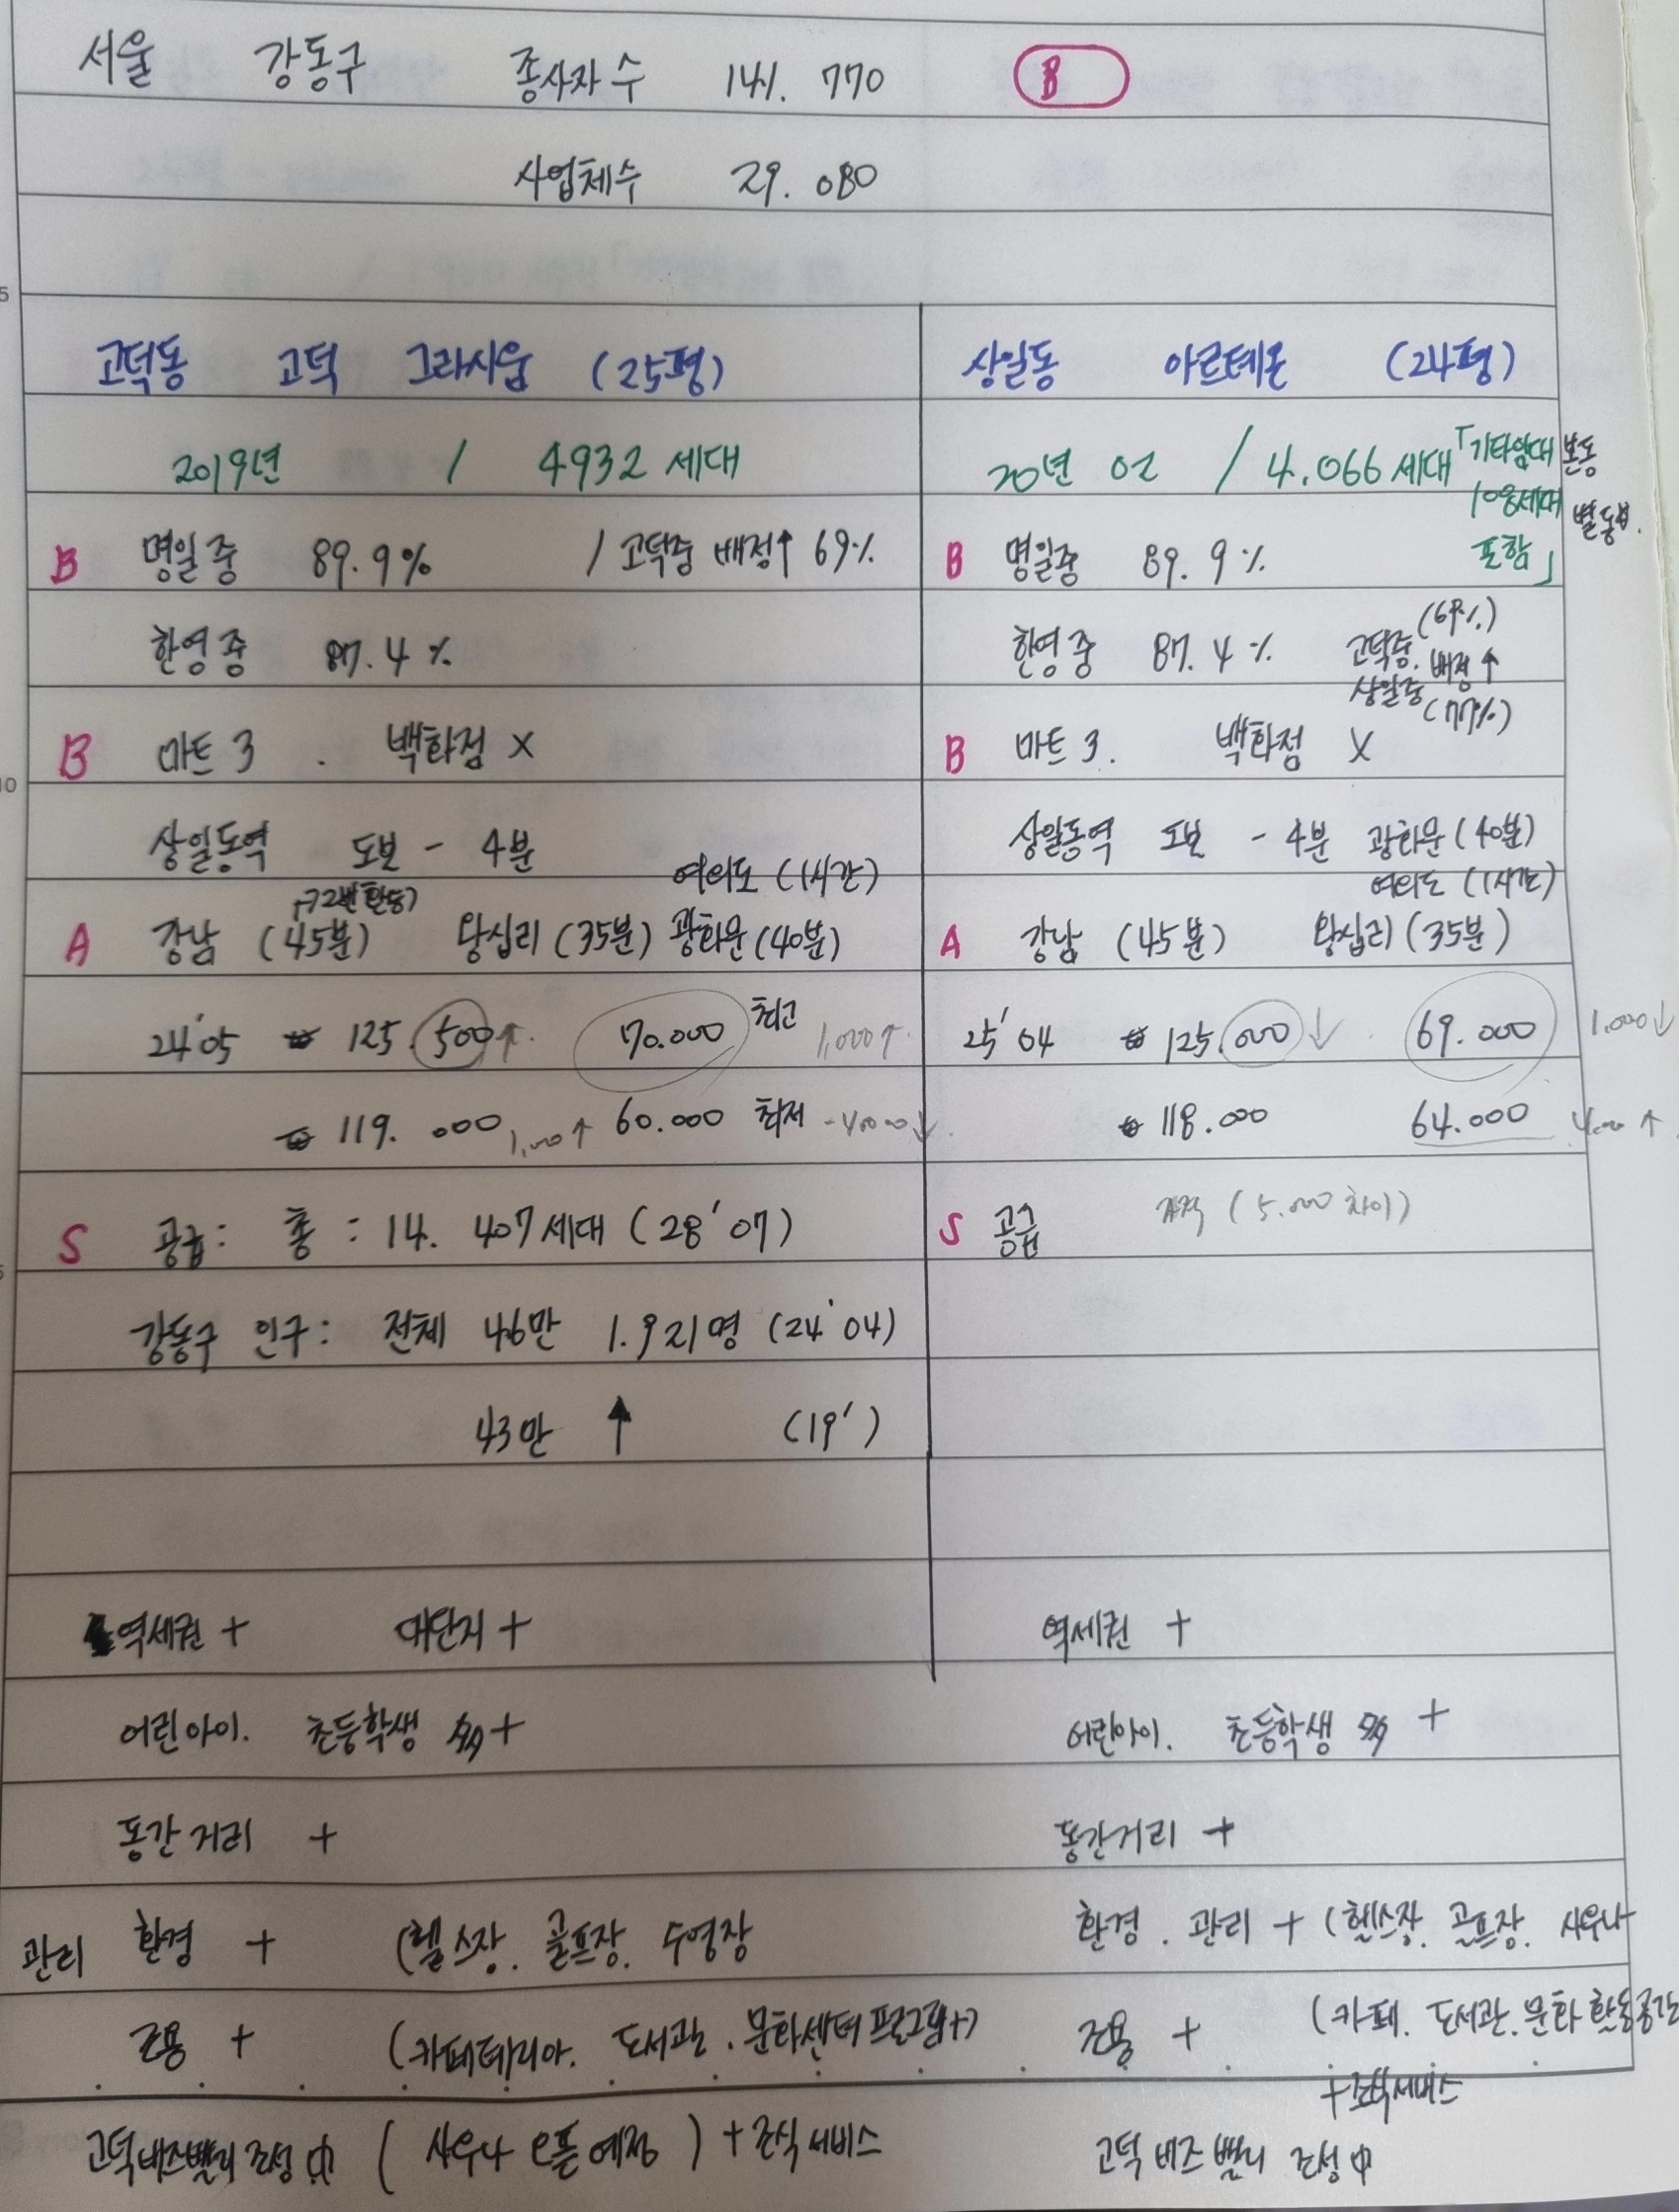 서울 강동구 종사자 수 141. 770 B
사업체수 29. 080
고덕동 고덕 그라시움 (25평)
2019년 / 4932 세대
B 명일중 89.9% / 고덕중 배정↑ 69%
한영중 87.4%
B 마트 3 . 백화점 X
상일동역 도보 - 4분
여의도 (1시간)
A 강남 (45분) 왕십리 (35분) 광화문 (40분)
24'05 125.500↑ 70.000 최고 1,000↑
119.000 1,000↑ 60.000 최저 -4,000↓
S 공급 : 총 : 14. 407세대 (28'07)
강동구 인구 : 전체 46만 1.921명 (24'04)
43만 ↑ (19')
역세권 + 대단지 +
어린아이. 초등학생 多 +
동간거리 +
관리 환경 + (헬스장. 골프장. 수영장
조용 + (카페테리아. 도서관. 문화센터 프로그램+)
고덕비즈밸리 조성中 ( 사우나 오픈예정 ) + 조식서비스
상일동 아르테온 (24평)
20년 02 / 4.066세대 「기타임대 108세대 포함」
본동
별동
B 명일중 89.9%
한영중 87.4% 고덕중. (69%) 배정↑
상일중 (77%)
B 마트 3. 백화점 X
상일동역 도보 - 4분 광화문 (40분)
여의도 (1시간)
A 강남 (45분) 왕십리 (35분)
25'04 125.000↓ 69.000 1.000↓
118.000 64.000 4,000↑
S 공급 (5.000 차이)
역세권 +
어린아이. 초등학생 多 +
동간거리 +
환경. 관리 + (헬스장. 골프장. 사우나
조용 + (카페. 도서관. 문화 활동공간
+조식서비스
고덕 비즈밸리 조성中